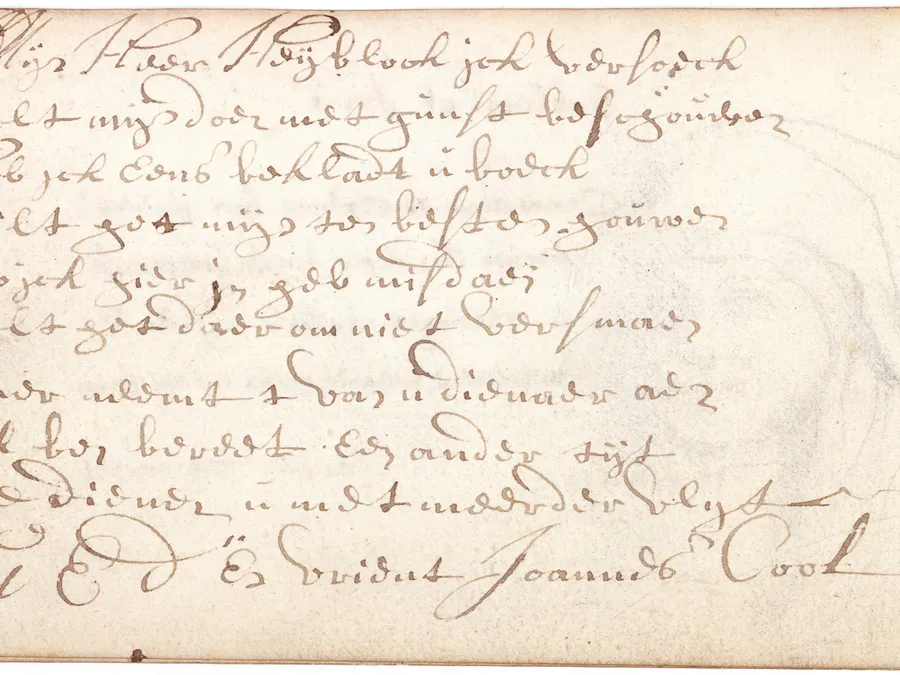 Mijn Heer Heyblock jck versoeck
elt mijn doen met gunst beschouwen
b jck Eens bekladt u boeck
ilt het mijn ten besten houwen
jck hier jn heb misdaen
lt het daerom niet versmaen
er neemt t van u dienaer aen
ben bereet Een ander tijt
dienen u met meerder vlyt
E d En vrient Joannes Cool